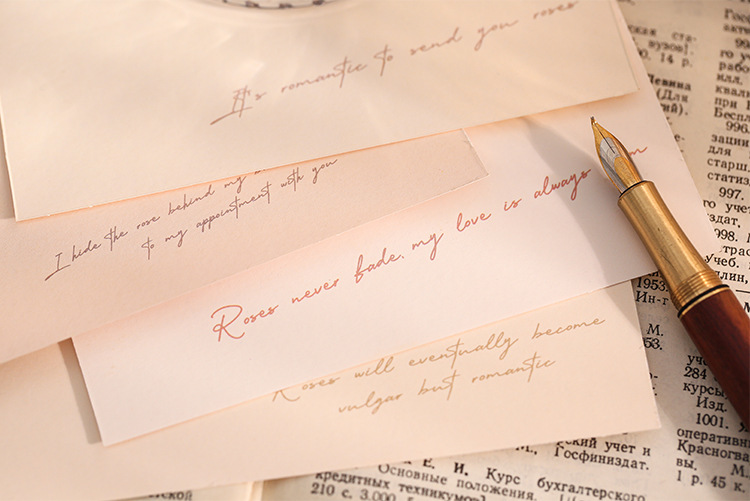 It's romantic to send you roses
I hide the rose behind my
to my appointment with you
Roses never fade, my love is always
Roses will eventually become
vulgar but romantic
кая ста-
вузов].
50. 14 р.
Левина
(Для
996
зации
для
старш.
статиз
997.
го учет
здат,
998. М
страс
учеб.
1953.
Ин-т
М.
53.
284
курсы
Изд.
1001.
оперативн
Красногва
вы. М.
1 р. 45 к.
ский учет и
М., Госфиниздат.
Е. И. Курс бухгалтерского
Основные положения.
кредитных техникумов
210 с. 3.000